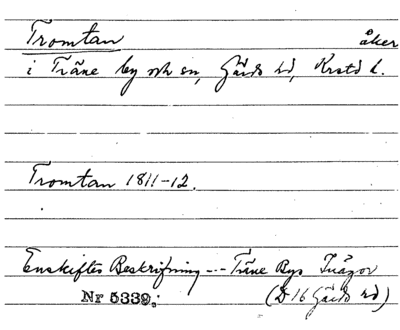 Tromtan åker
i Träne by och sn, Gärds hd, Krstd l.
Tromtan 1811-12.
Enskiftes Beskrifning --- Träne Bys Inägor
Nr 5339. (D 16 Gärds hd)